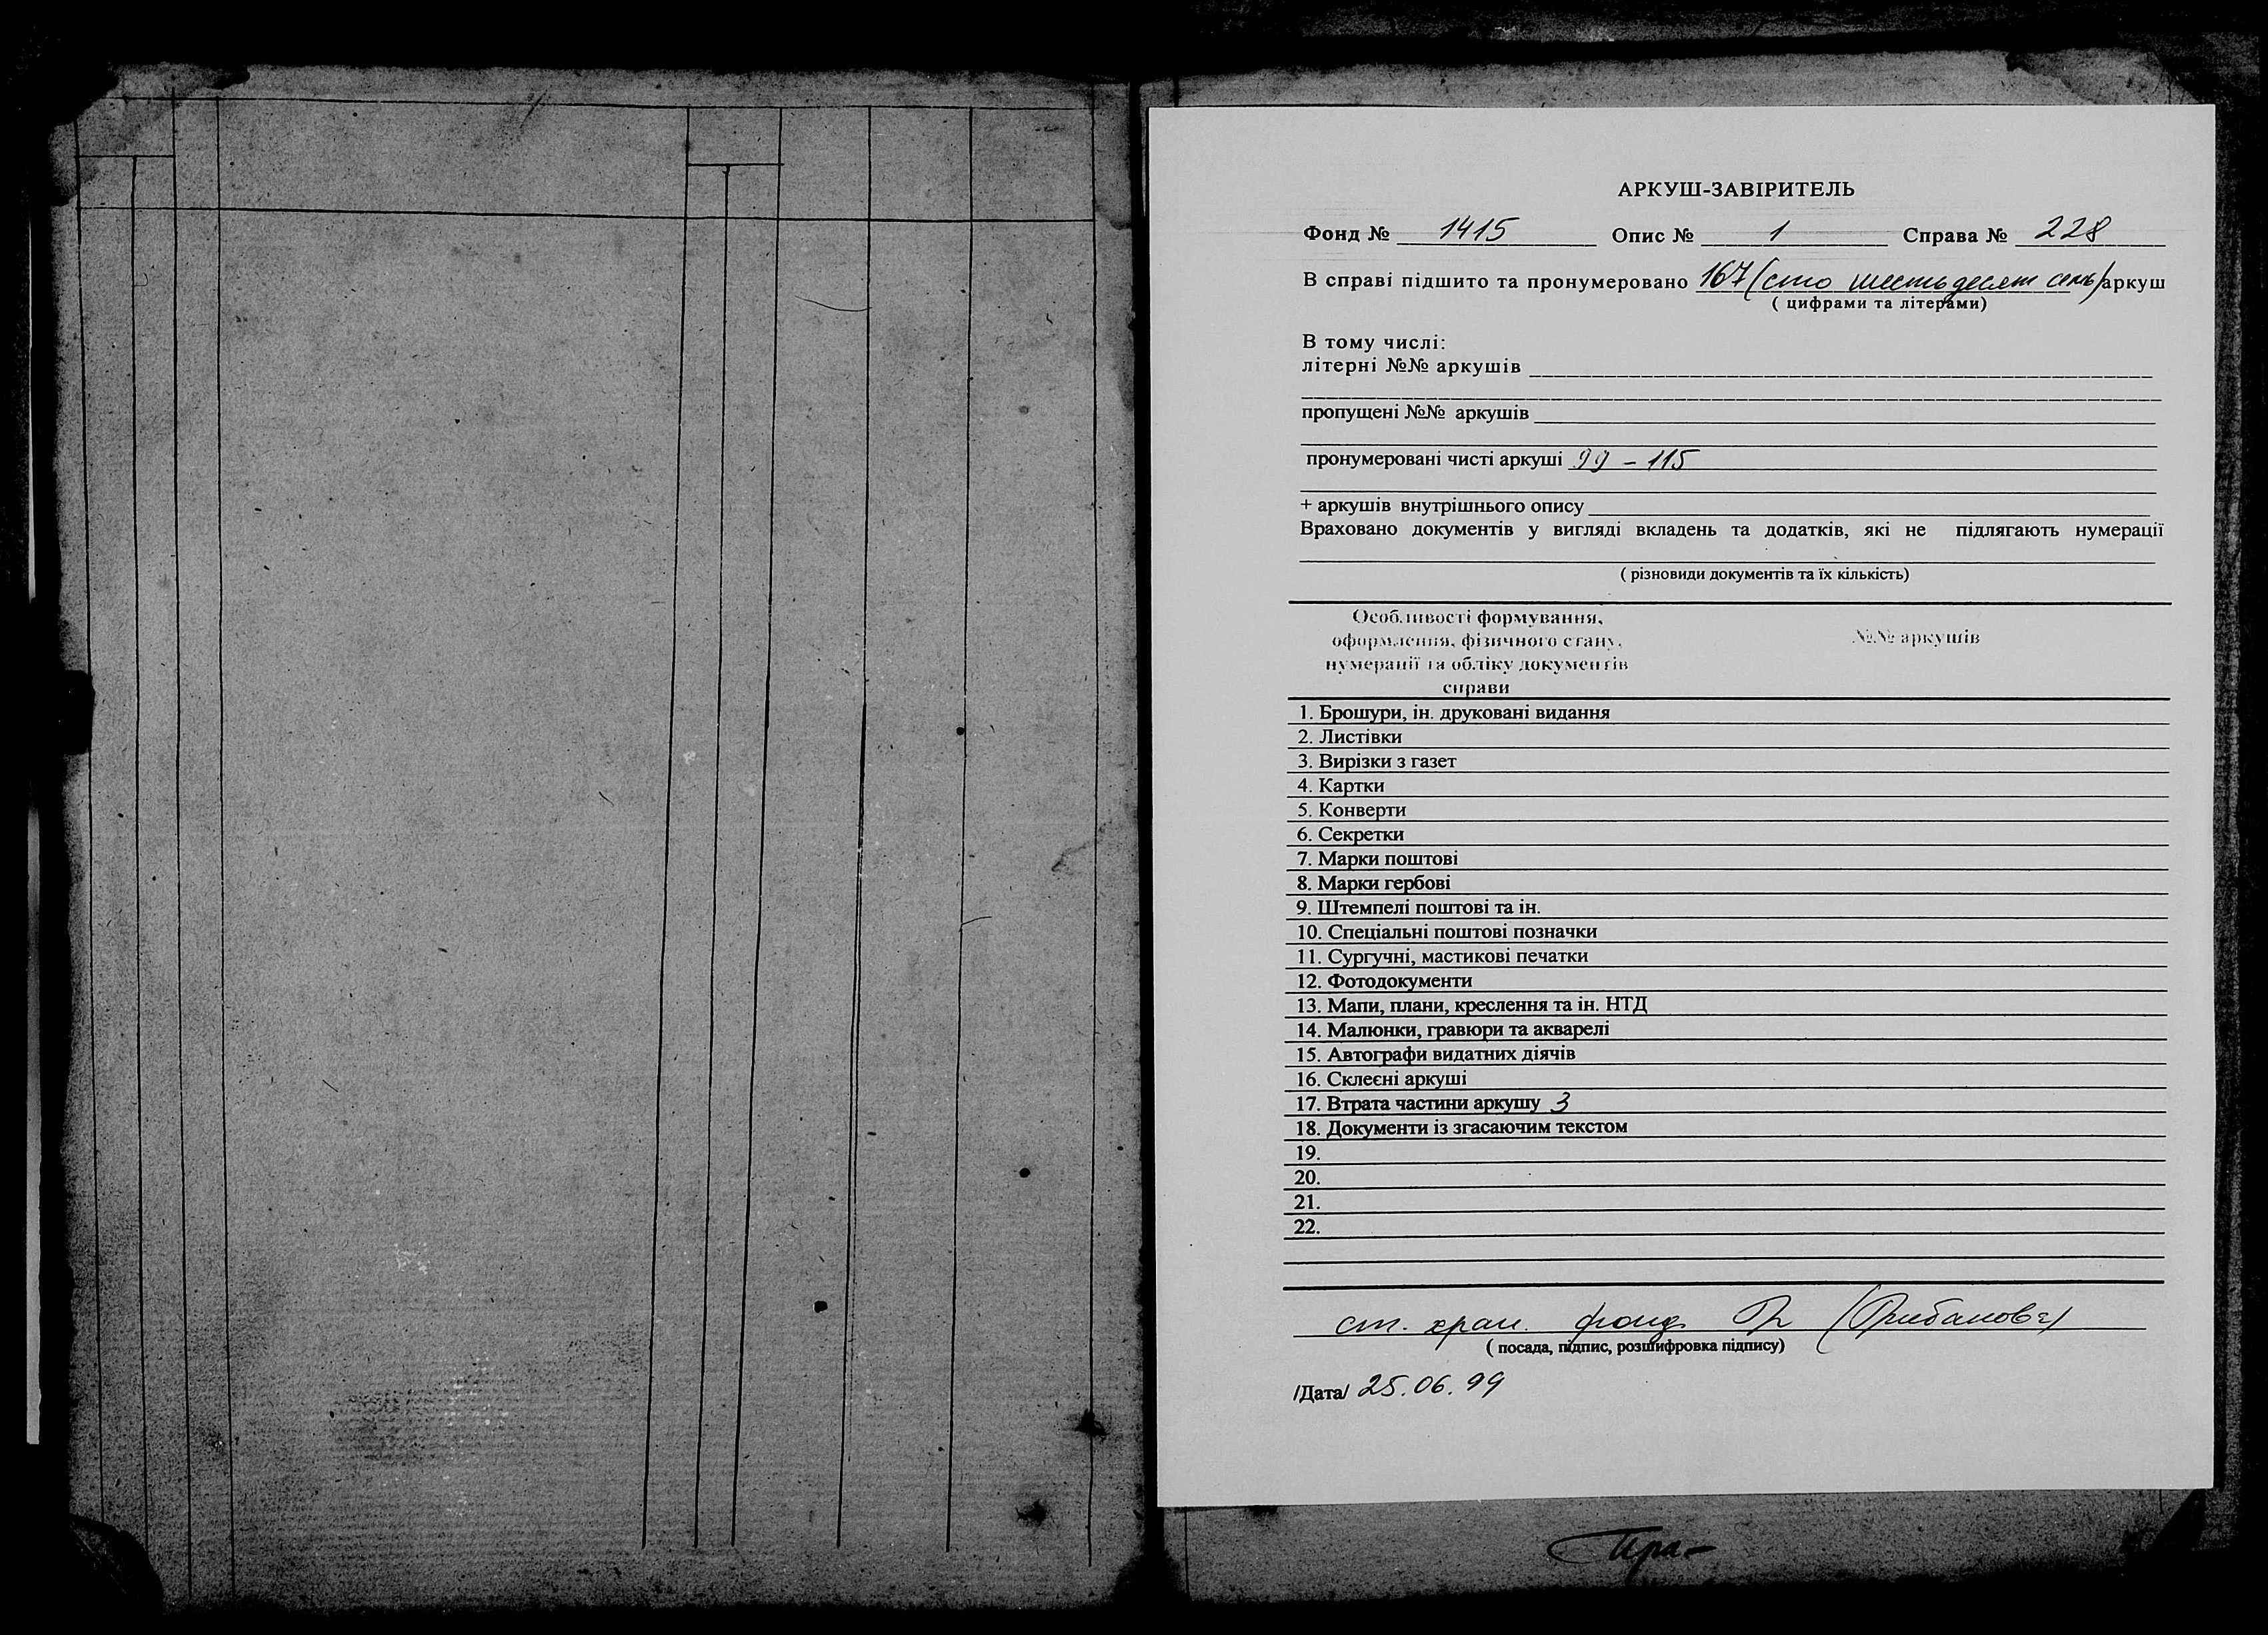 АРКУШ-ЗАВІРИТЕЛЬ
Фонд № 1415 Опис № 1 Справа № 228
В справі підшито та пронумеровано 167 (сто шестьдесят семь) аркуш
( цифрами та літерами)
В тому числі:
літерні №№ аркушів
пропущені №№ аркушів
пронумеровані чисті аркуші 99 – 115
+ аркушів внутрішнього опису
Враховано документів у вигляді вкладень та додатків, які не підлягають нумерації
( різновиди документів та їх кількість)
Особливості формування, 
оформлення, фізичного стану,
№№ аркушів
нумерації та обліку документів
справи
1. Брошури, ін. друковані видання
2. Листівки
3. Вирізки з газет
4. Картки
5. Конверти
6. Секретки
7. Марки поштові
8. Марки гербові
9. Штемпелі поштові та ін.
10. Спеціальні поштові позначки
11. Сургучні, мастикові печатки
12. Фотодокументи
13. Мапи, плани, креслення та ін. НТД
14. Малюнки, гравюри та акварелі
15. Автографи видатних діячів
16. Склеєні аркуші
17. Втрата частини аркушу 3
18. Документи із згасаючим текстом
19.
20.
21.
22.
ст. хран. фонд.
( посада, підпис, розшифровка підпису)
/Дата/ 25.06.99